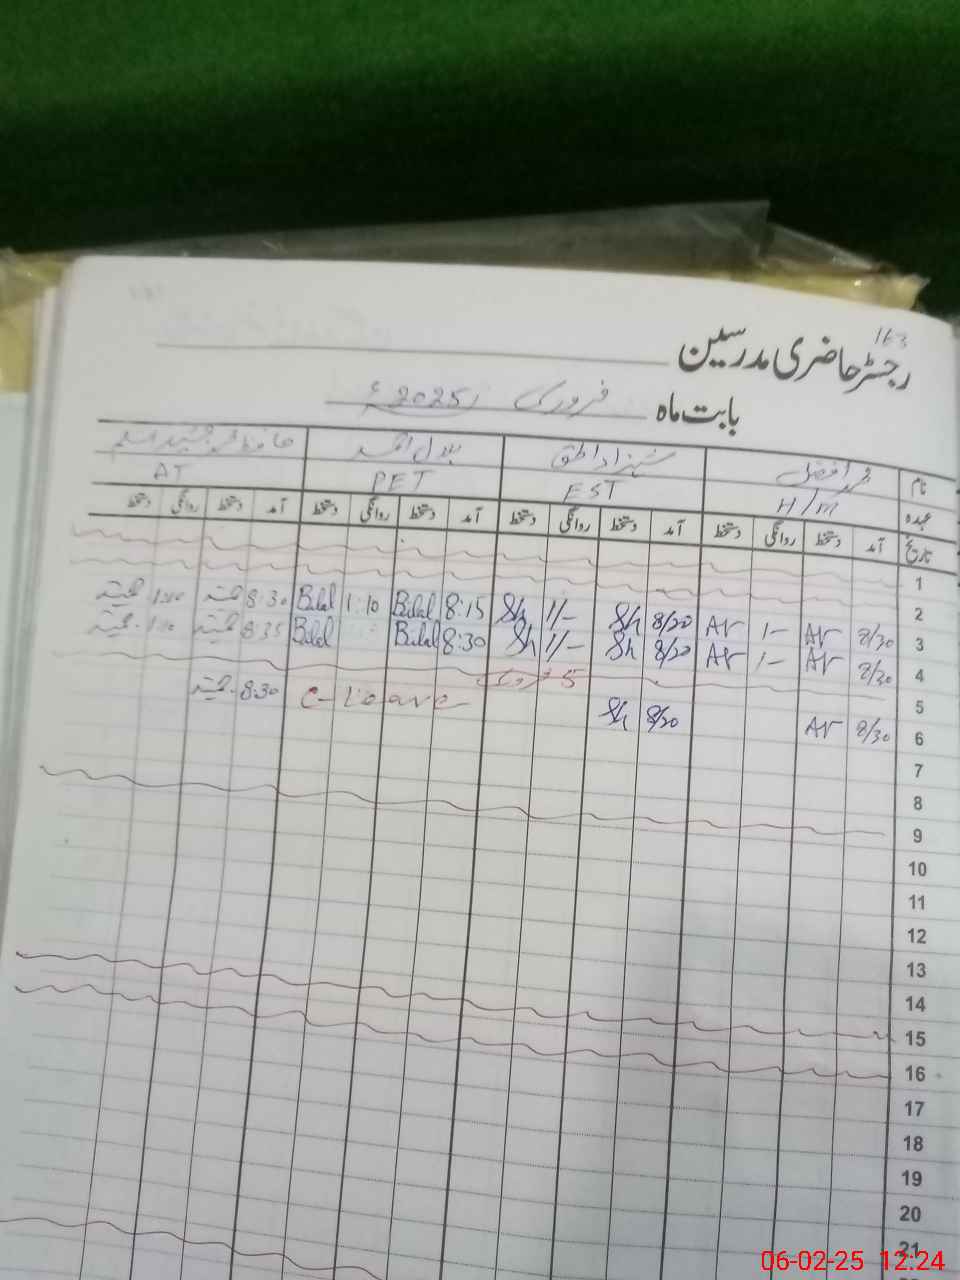 163
رجسٹر حاضری مدرسین
بابت ماہ فروری 2025ء
نام محمد افضل شہزاد الحق بلال احمد حافظ محمد جنید اسلم
عہدہ H/M EST PET AT
تاریخ آمد دستخط روانگی دستخط آمد دستخط روانگی دستخط آمد دستخط روانگی دستخط آمد دستخط روانگی دستخط
1
2
3 8/30 AR 1- AR 8/20 Sh 1/- Sh 8:15 Bilal 1:10 Bilal 8:30 1:00
4 8/30 AR 1- AR 8/20 Sh 1/- Sh 8:30 Bilal Bilal 8:35 1:10
5 5 فروری
6 8/30 AR 8/20 Sh C-Leave 8:30
7
8
9
10
11
12
13
14
15
16
17
18
19
20
21
06-02-25 12:24